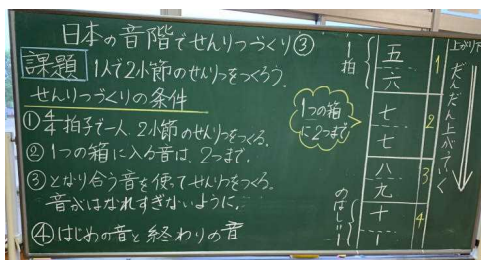 日本の音階でせんりつづくり③
課題 1人で2小節のせんりつをつくろう.
せんりつづくりの条件
①4/4拍子で一人.2小節のせんりつをつくる.
②1つの箱に入る音は.2つまで.
③となり合う音を使ってせんりつをつくる。
音がはなれすぎないように.
④はじめの音と終わりの音
1つの箱
に2つまで
一拍
五
六
七
七
八
九
十
1
2
3
4
だんだん上がっていく